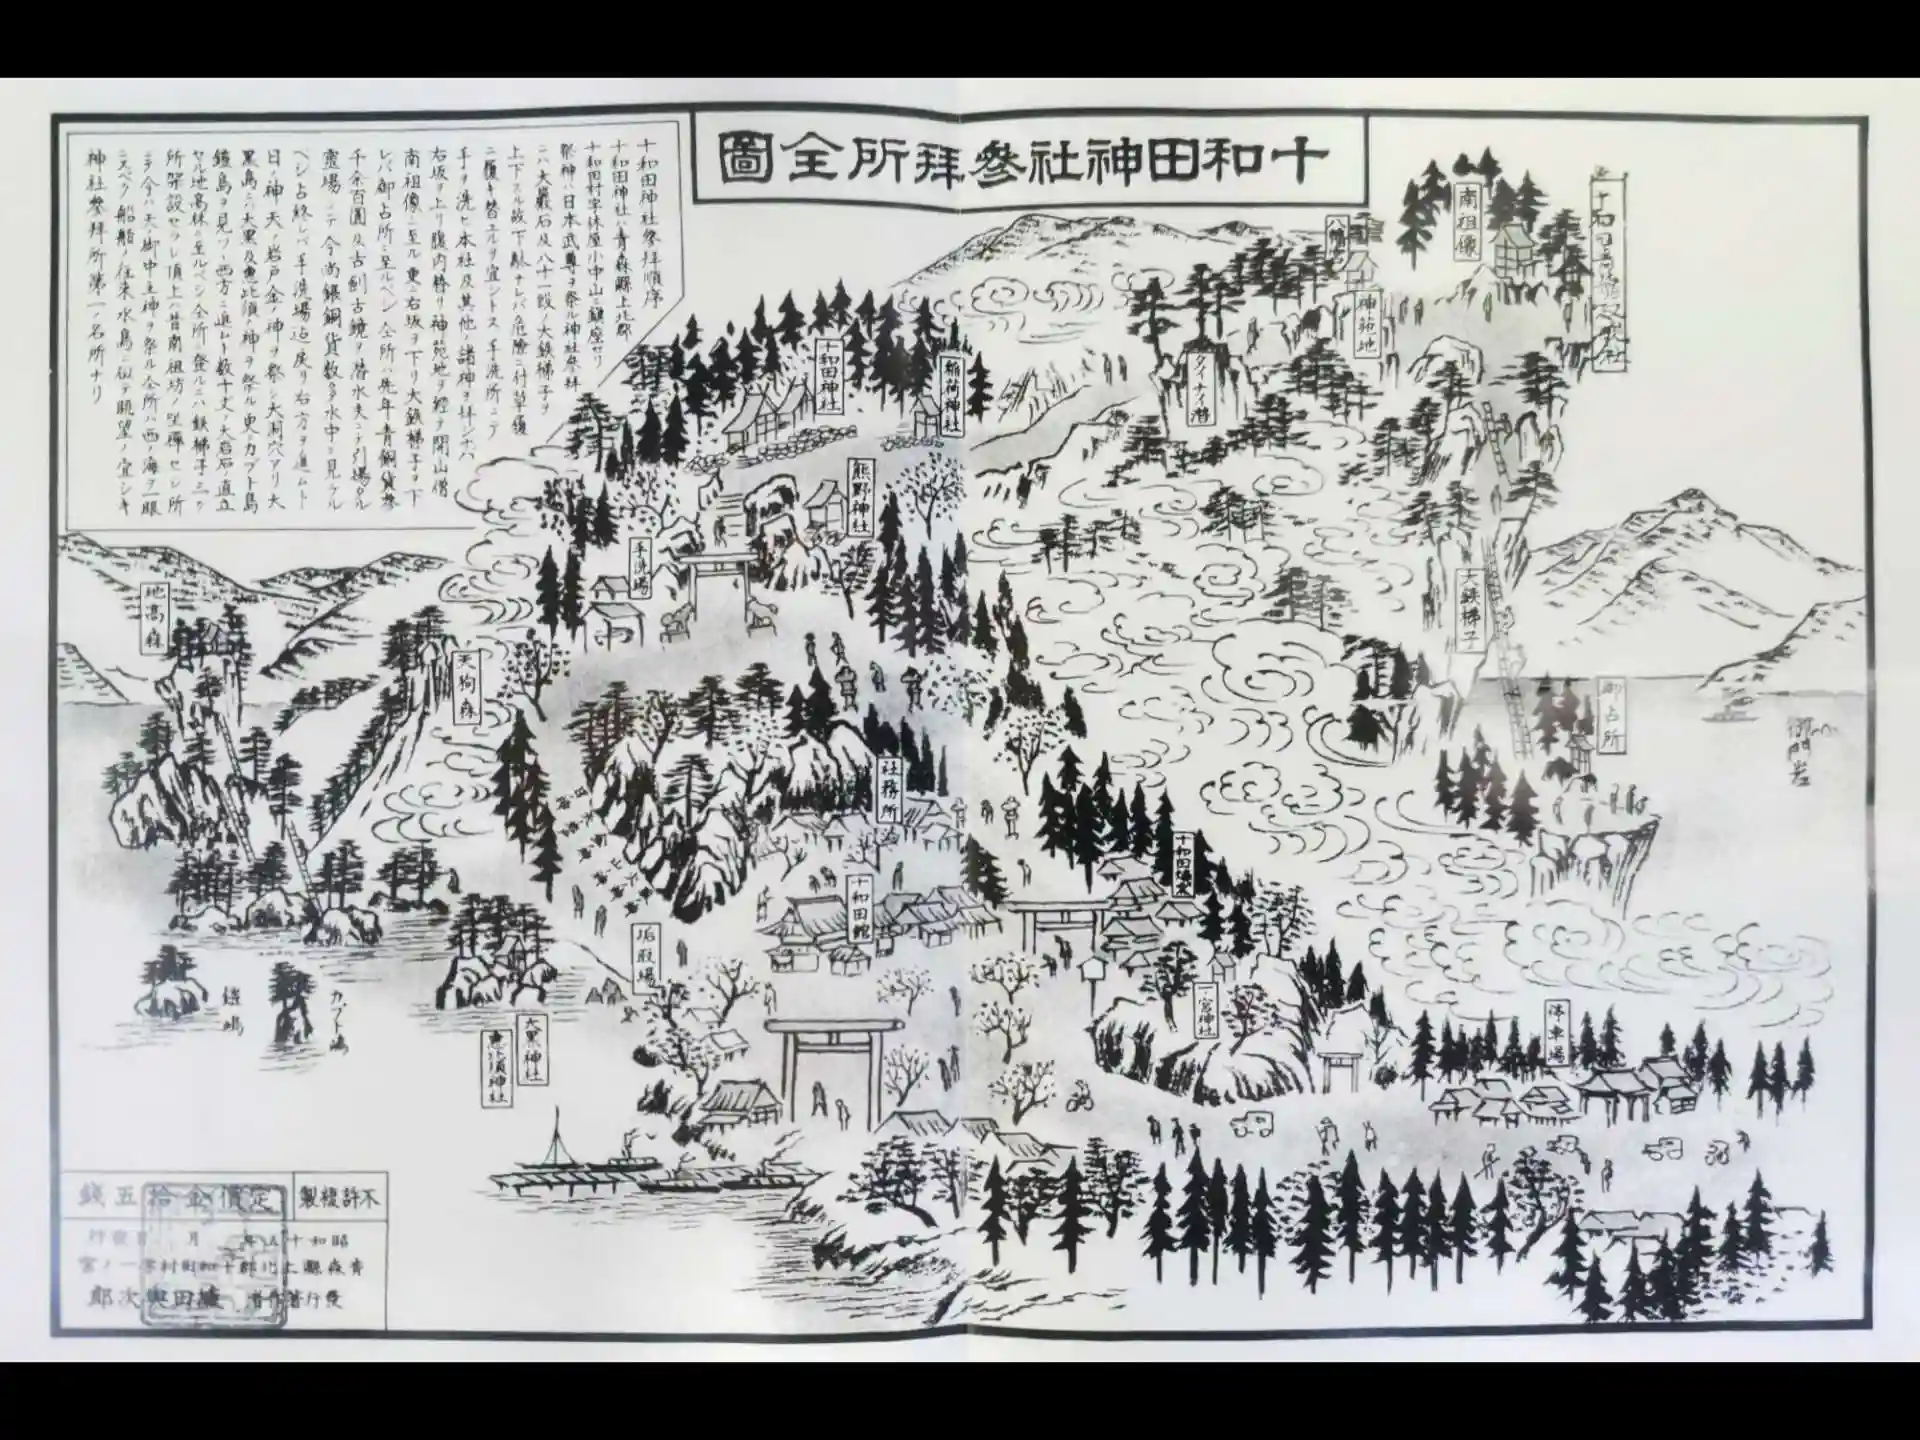 十和田神社參拜所全圖
十和田神社参拜順序
十和田神社ハ青森縣上北郡
十和田村字休屋小中山ニ鎮座セリ
祭神ハ日本武尊ヲ祭ル神社参拜
ニハ大巖石及八十一段ノ大鉄梯子ヲ
上下スル故下駄ナレバ危險ニ付草復
ニ履キ替エルヲ宜シトス手洗所ニテ
手ヲ洗ヒ本社及其他ノ諸神ヲ拝シ
右坂ヲ上リ腹内替リ神苑地ヲ經テ開山僧
南祖像ニ至ル更ニ右坂ヲ下リ大鉄梯子ヲ下
レバ御占所ニ至ルベシ仝所ハ先年青銅貨参
千余百圓及古劍古鏡ヲ潜水夫ニテ引揚タル
靈場ニテ今尚銀銅貨数多水中ニ見ラル
ベシ占終レバ手洗場迠戻リ右方ヲ進ムト
日ノ神天ノ岩戸金ノ神ヲ祭シ大洞穴アリ大
黒島ニハ大黒及恵比須ノ神ヲ祭ル更ニカブト島
鎧島ヲ見ツヽ西方ニ進ムト数十丈ノ大岩石ノ直立
セル地高林ニ至ルベシ仝所ノ登ルニハ鉄梯子三ツ
所架設セラレ頂上ハ昔南祖坊ノ坐禅セシ所
ニテ今ハ天ノ御中主神ヲ祭ル仝所ハ西ノ海ヲ一眼
ニスベク船舶ノ往来水鳥ニ似テ眺望ノ宜シキ
神社參拜所第一ノ名所ナリ
南祖像
八幡
神苑地
タイナイ潜
十和田神社
稲荷神社
熊野神社
手洗場
地高森
天狗森
大鉄梯子
御占所
御門岩
社務所
十和田館
垢取場
十和田
一宮神社
停車場
鎧嶋
カブト嶋
大黒神社
恵比須神社
定價金拾五錢
不許複製
昭和十
青森縣上北郡十和田村字一ノ宮
發行著作者
田與次郎